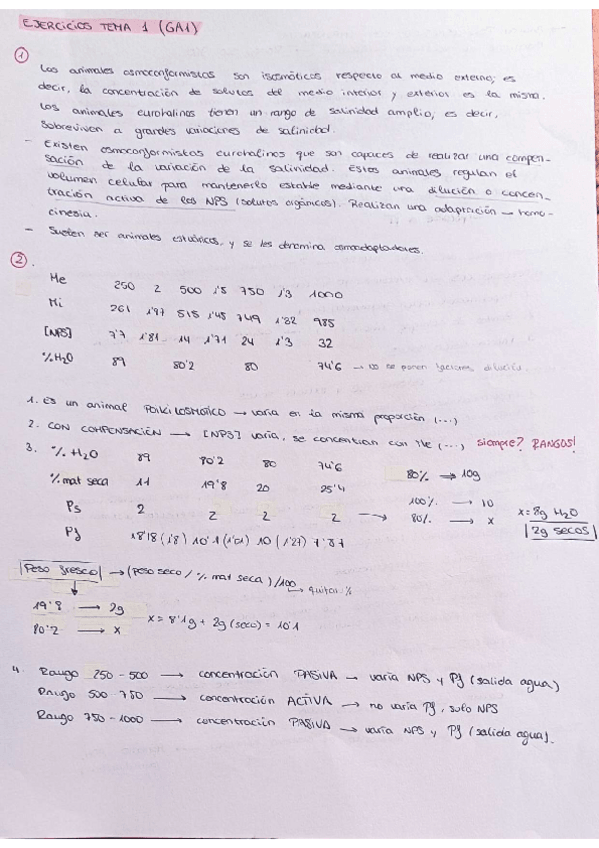 EJERCICIOS TEMA 1 (GA1)
①
Los animales osmoconformistas son isosmóticos respecto al medio externo; es
decir, la concentración de solutos del medio interior y exterior es la misma.
Los animales eurohalinos tienen un rango de salinidad amplio, es decir,
sobreviven a grandes variaciones de salinidad.
- Existen osmoconformistas eurohalinos que son capaces de realizar una compen-
sación de la variación de la salinidad. Estos animales regulan el
volumen celular para mantenerlo estable mediante una dilución o concen-
tración activa de los NPS (solutos orgánicos). Realizan una adaptación — homo-
cinesia.
- Suelen ser animales estuáricos, y se les denomina osmoadaptadores.
②.
Me 250 2 500 1'5 750 1'3 1000
Mi 261 1'97 515 1'45 749 1'32 985
[NPS] 7'7 1'81 14 1'71 24 1'3 32
% H2O 89 80'2 80 74'6 → no se ponen factores dilución
1. ES un animal POIKILOSMÓTICO → varía en la misma proporción (...)
2. CON COMPENSACIÓN → [NPS] varía, se concentran con Me (...) siempre? RANGOS!
3. % H2O 89 80'2 80 74'6
% mat seca 11 19'8 20 25'4
Ps 2 2 2 2 →
Pf 18'18 (1'8) 10'1 (1'01) 10 (1'27) 7'87
80% → 10g
100% → 10
80% → x
x = 8g H2O
2g secos
Peso fresco → (peso seco / % mat seca) / 100
→ quitar %
19'8 → 2g
80'2 → x
x = 8'1g + 2g (seco) = 10'1
4. Rango 250 - 500 → concentración PASIVA → varía NPS y Pf (salida agua)
Rango 500 - 750 → concentración ACTIVA → no varía Pf, solo NPS
Rango 750 - 1000 → concentración PASIVA → varía NPS y Pf (salida agua).